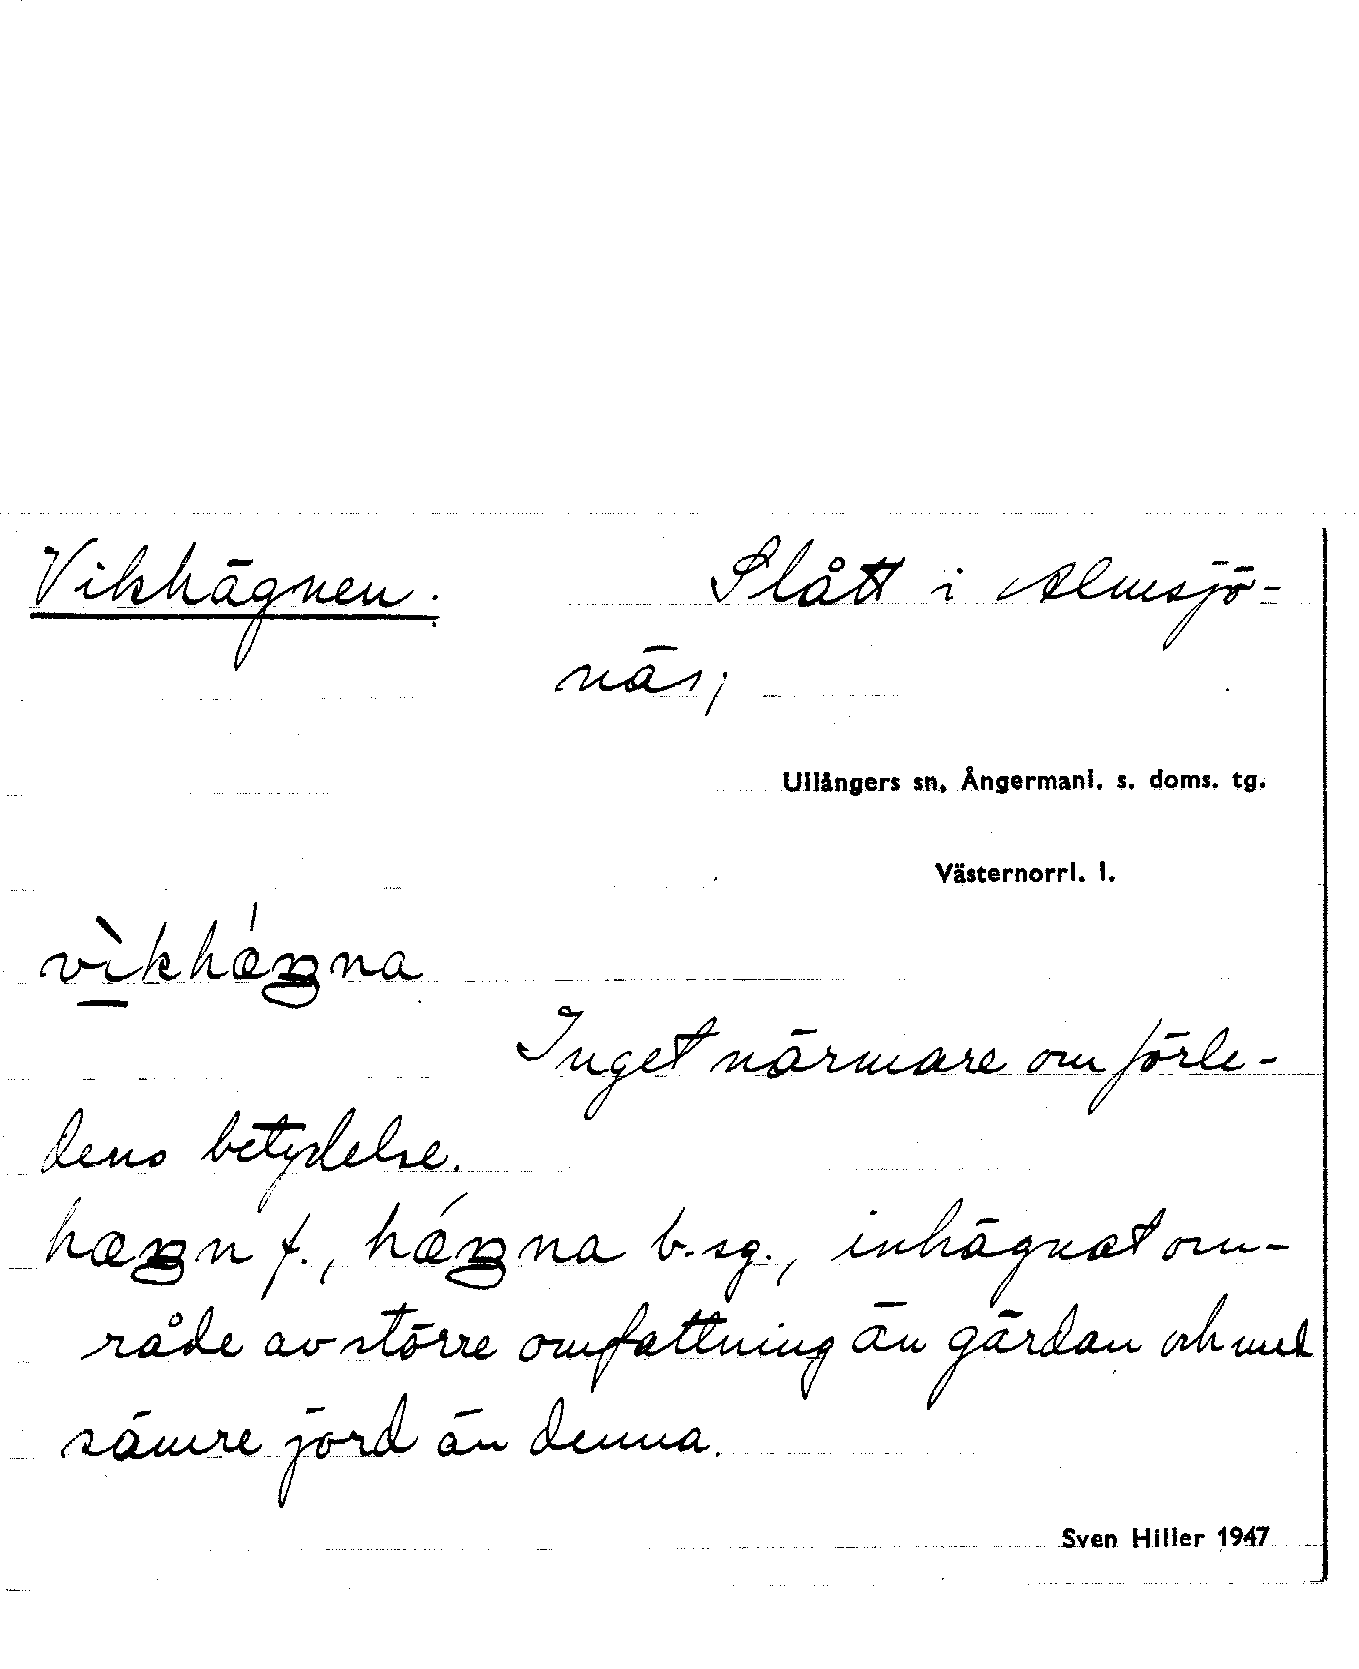 Vikhägnen. Slått i Almsjö-
näs;
Ullångers sn, Ångermanl. s. doms. tg.
Västernorrl. l.
vìkhǽŋna
Inget närmare om förle-
dens betydelse.
hæŋn f., hǽŋna b.sg., inhägnat om-
råde av större omfattning än gärdan och med
sämre jord än denna.
Sven Hiller 1947